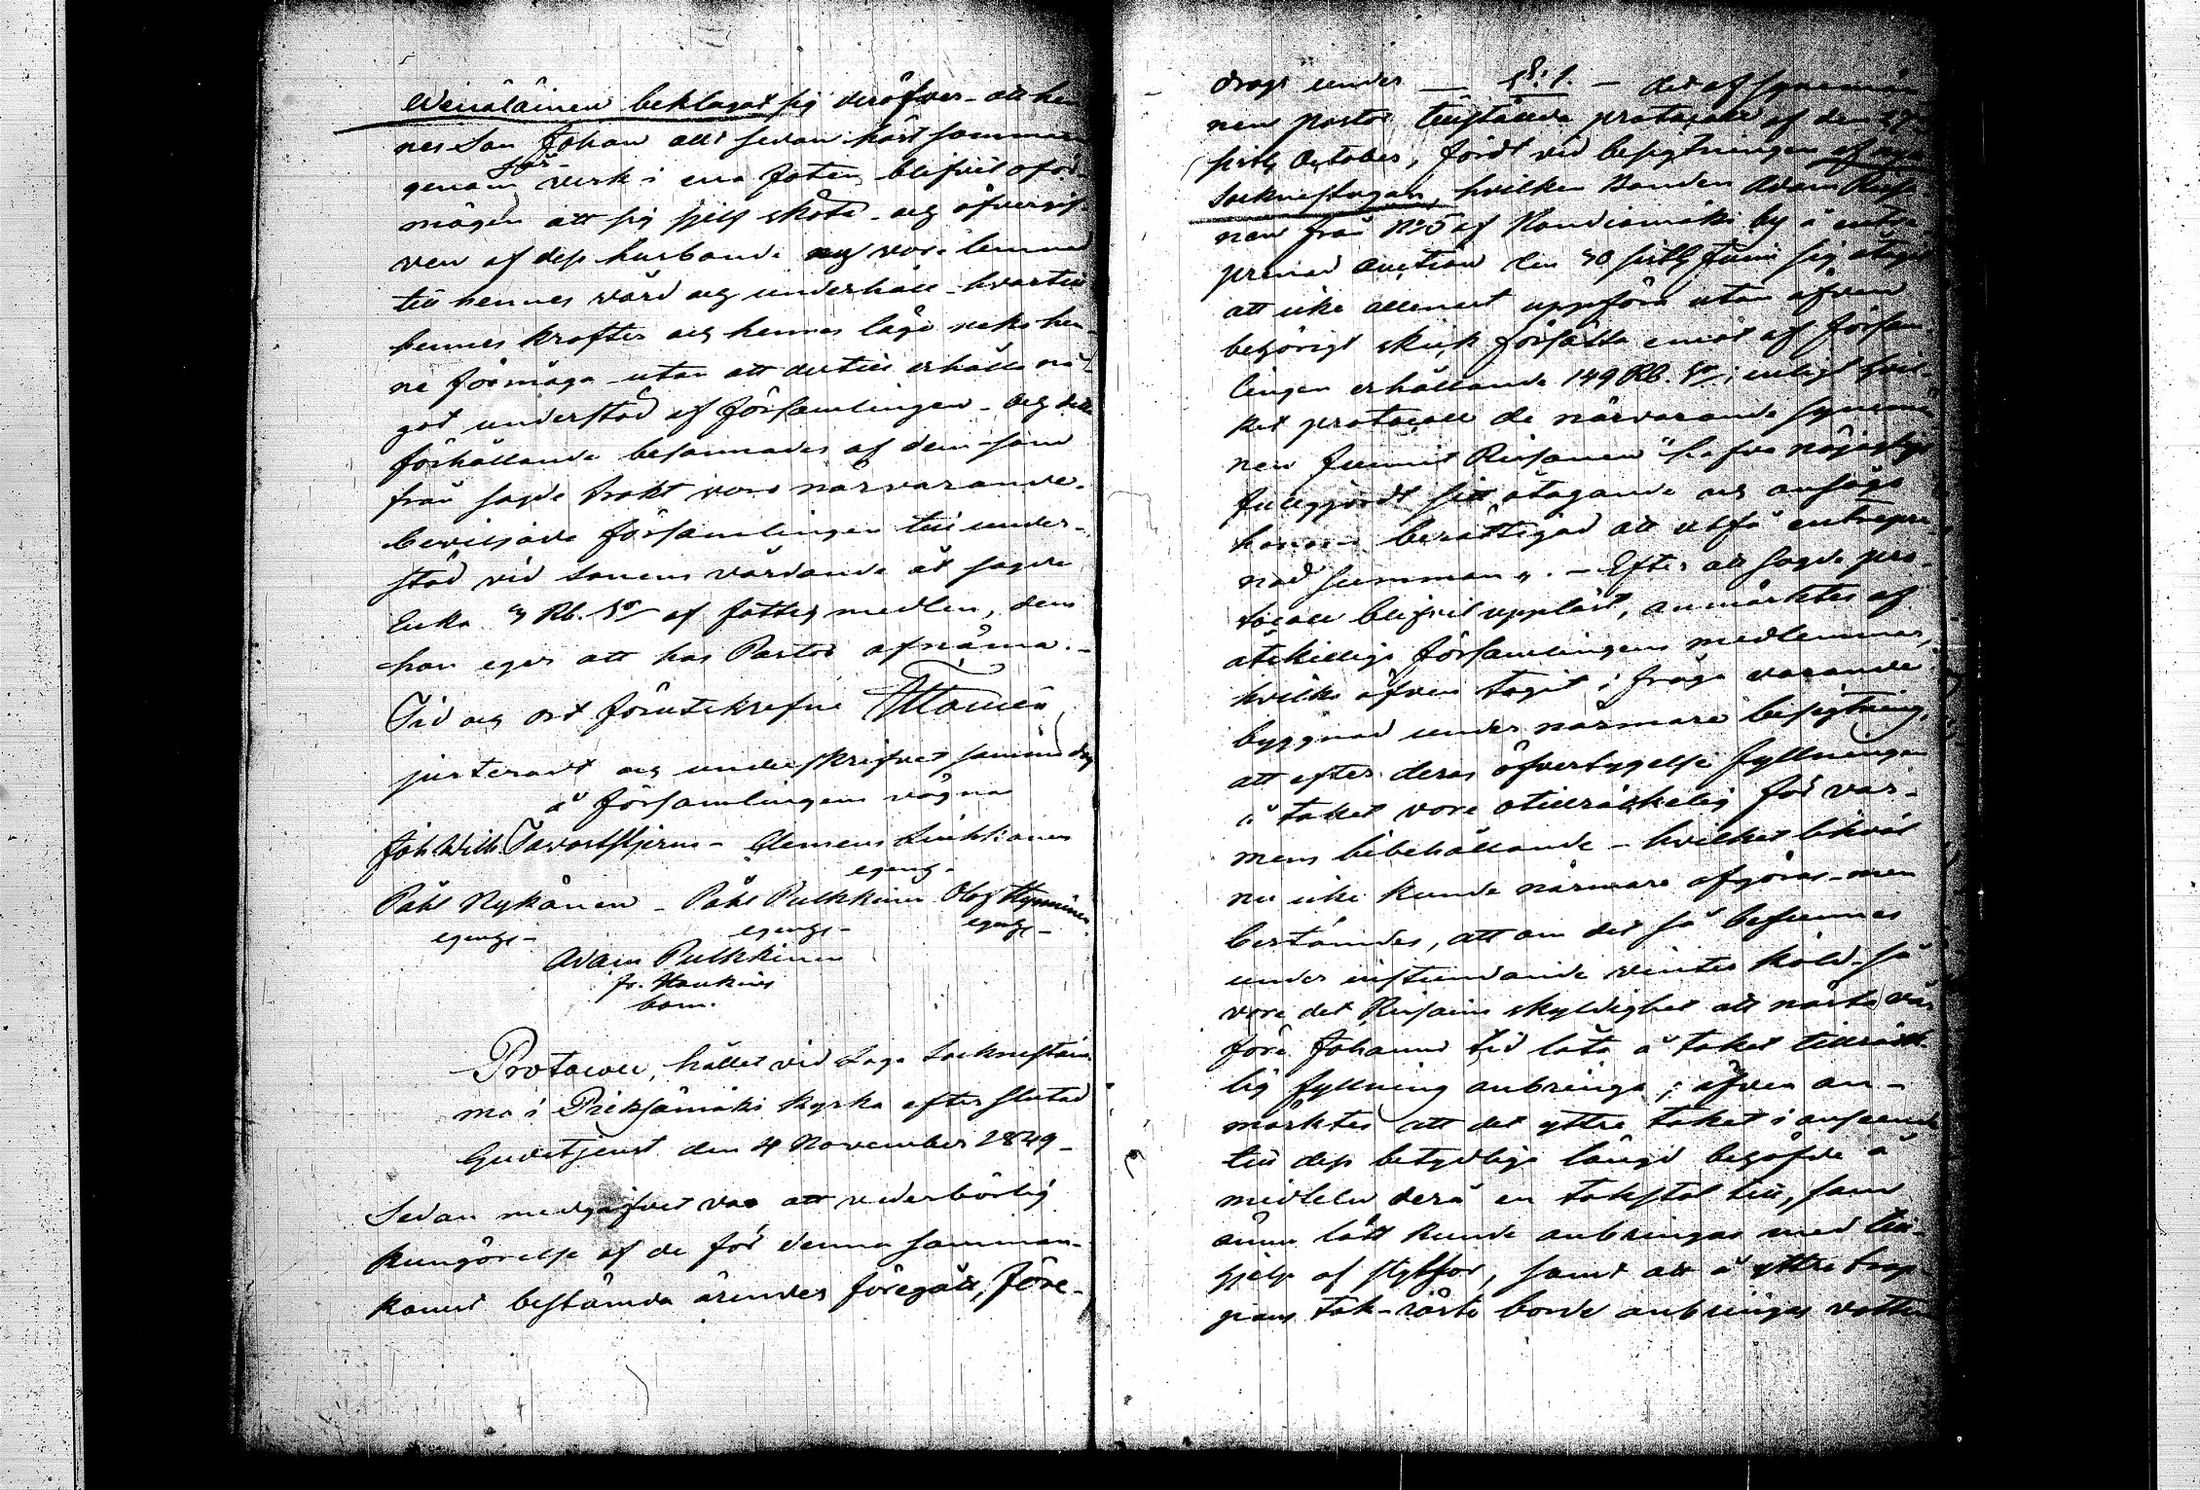 Wenäläinen beklagat sig deröfver att hen-
nes Son Johan allt sedan höstsommaren
genom sår verk i ena foten blifvit oför-
mögen att sig sjelf sköta och öfvergif-
ven af dess husbonde nu vore lemnad
till hennes vård och underhåll hvartill
hennes krafter och hennes låge neka hen-
ne förmåga utan att dertill erhålla nå-
got understöd af församlingen. Och
förhållande besannades af dem som
från sagde trakt voro närvarande.
beviljade församlingen till under-
stöd vid sonens vårdande åt sagde
Enka 3 Rb. Sr af fattig medlen, dem
hon eger att hos Pastor afnäma.
Tid och ort förutskrefne
justeradt och underskrifvet samma dag
å församlingens vägna
Joh. Wilh. Tavaststjerna - Clemens Liukkonen
egengs-
Påhl Nykänen - Påhl Pulkkinen Olof Hyvninen
egengs- egengs- egengs-
Adam Pulkkinen
fr. Haukies
bom.
Protocoll, hållet vid Laga Socknestäm-
ma i Pieksämäki kyrka efter slutad
Gudstjenst den 4 November 1849-
Sedan medgifvet var att vederbörlig
kungörelse af de för denna samman-
komst bestämda ärenden föregått, före-
drogs under — §: 1. — det af synemän-
nen pastor tillstälda protocoll af den
sistl October, fördt vid besigtningen af nya
Socknestugan, hvilken Bonden Adam Reisa-
nen från No 5 af Nandismäki by å entre-
prenad auction den 30 sistl Junii sig åtagit
att icke allenast uppföra utan äfven
behörigt skick försätta emot af försam-
lingen erhållande 149 Rb. Sr; enligt hvil-
ket protocoll de närvarande synemän-
nen funnit Reisanen
fullgjordt sitt åtagande och ansågo
honom berättigad att utfå entrepre-
nad summan". — Efter att sagde pro-
tocoll blifvit uppläst, anmärktes af
åtskillige församlingens medlemmar,
hvilka äfven tagit i fråga varande
byggnad under närmare besigtning,
att efter deras öfvertygelse fyllningen
å taket vore otillräckelig för vär-
mens bibehållande - hvilket likväl
nu icke kunde närmare afgöras - men
bestämdes, att om det så befunnes
under instundande vinter köld så
vore det Reisains skyldighet att nästa vår
före Johanni tid låta å taket tillräck-
lig fyllning anbringa; äfven an-
märktes att det yttre taket i anseende
till dess betydliga längd behöfde å
midtelen derå en takstol till, som
ännu lätt kunde anbringas med till-
hjelp af stytstor, samt att å yttre trap-
pans tak-röste borde anbringas vatten